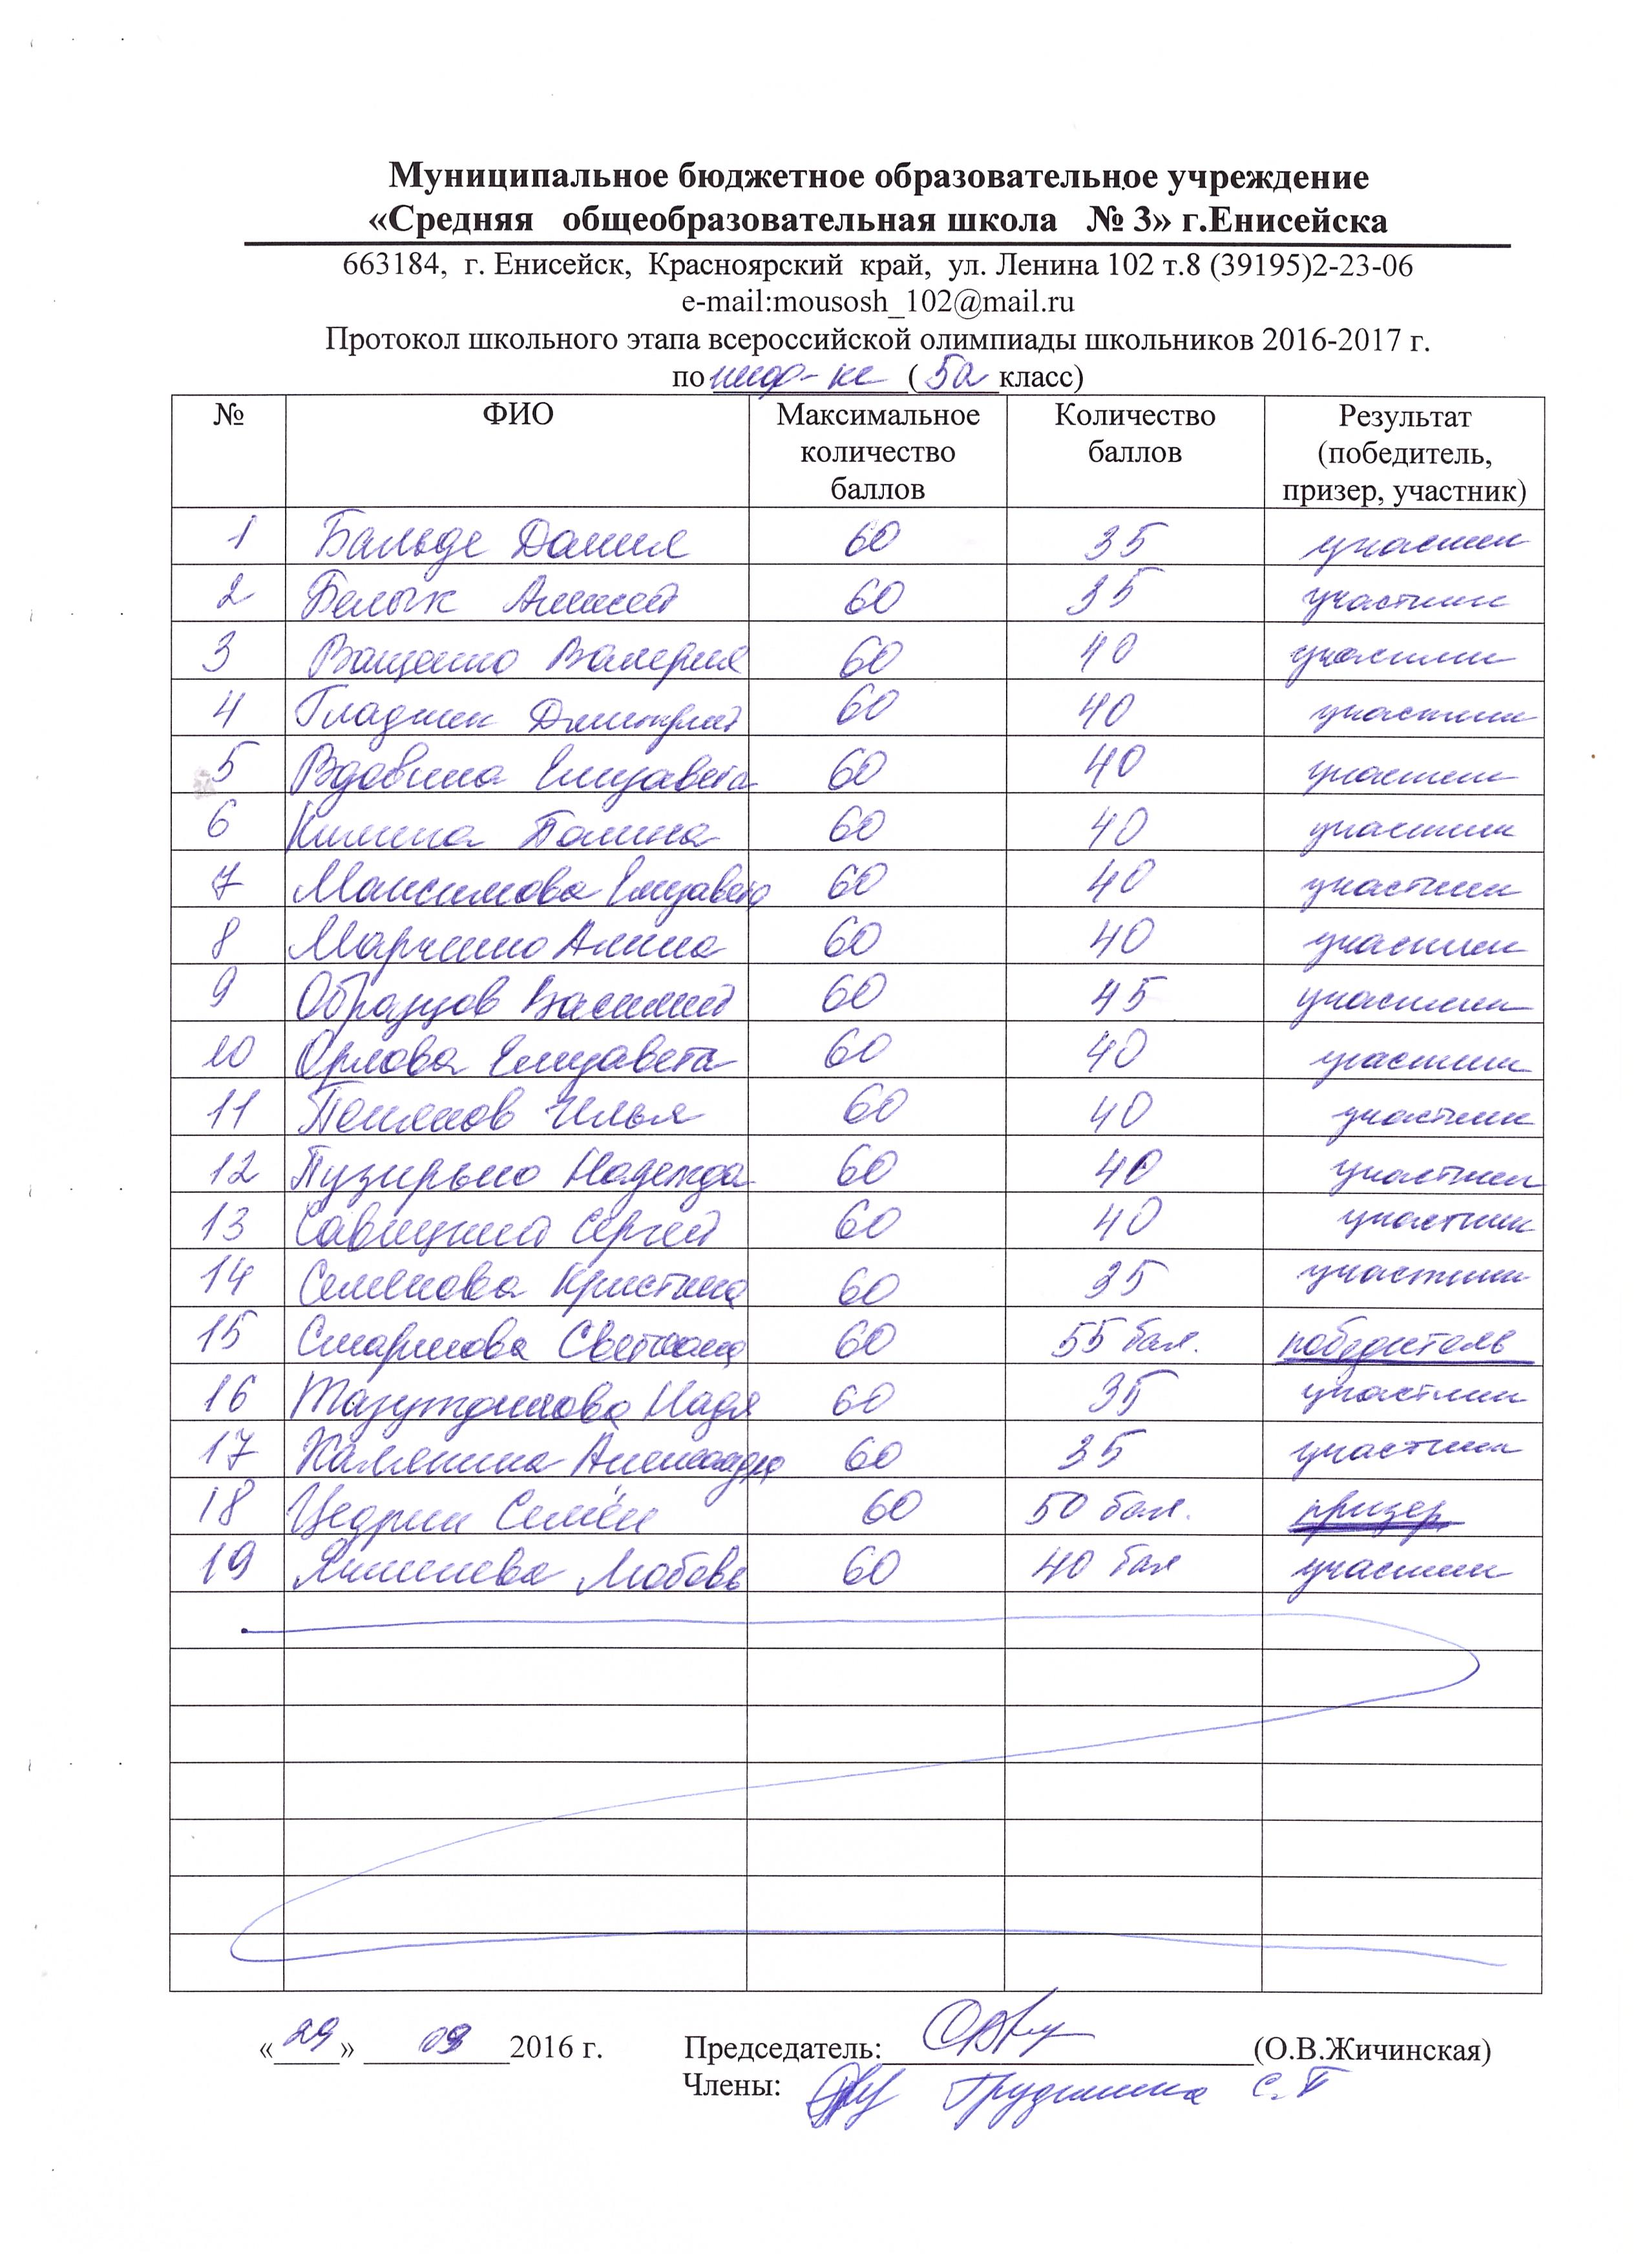 Муниципальное бюджетное образовательное учреждение
«Средняя общеобразовательная школа № 3» г.Енисейска
663184, г. Енисейск, Красноярский край, ул. Ленина 102 т.8 (39195)2-23-06
e-mail:mousosh_102@mail.ru
Протокол школьного этапа всероссийской олимпиады школьников 2016-2017 г.
по инф-ке (5а класс)
№ ФИО Максимальное количество баллов Количество баллов Результат (победитель, призер, участник)
1 Бальде Данил 60 35 участник
2 Белык Алексей 60 35 участник
3 Ващенко Валерия 60 40 участник
4 Гладких Дмитрий 60 40 участник
5 Вдовина Елизавета 60 40 участник
6 Полина 60 40 участник
7 Максимова Елизавета 60 40 участник
8 Марченко Алина 60 40 участник
9 Образцов Василий 60 45 участник
10 Орлова Елизавета 60 40 участник
11 Илья 60 40 участник
12 Надежда 60 40 участник
13 Савицкий Сергей 60 40 участник
14 Семенова Кристина 60 35 участник
15 Светлана 60 55 бал. победитель
16 Надя 60 35 участник
17 Александра 60 35 участник
18 Цедрик Семён 60 50 бал. призер
19 Любовь 60 40 бал участник
«29» 09 2016 г. Председатель: (О.В.Жичинская)
Члены: С.Г